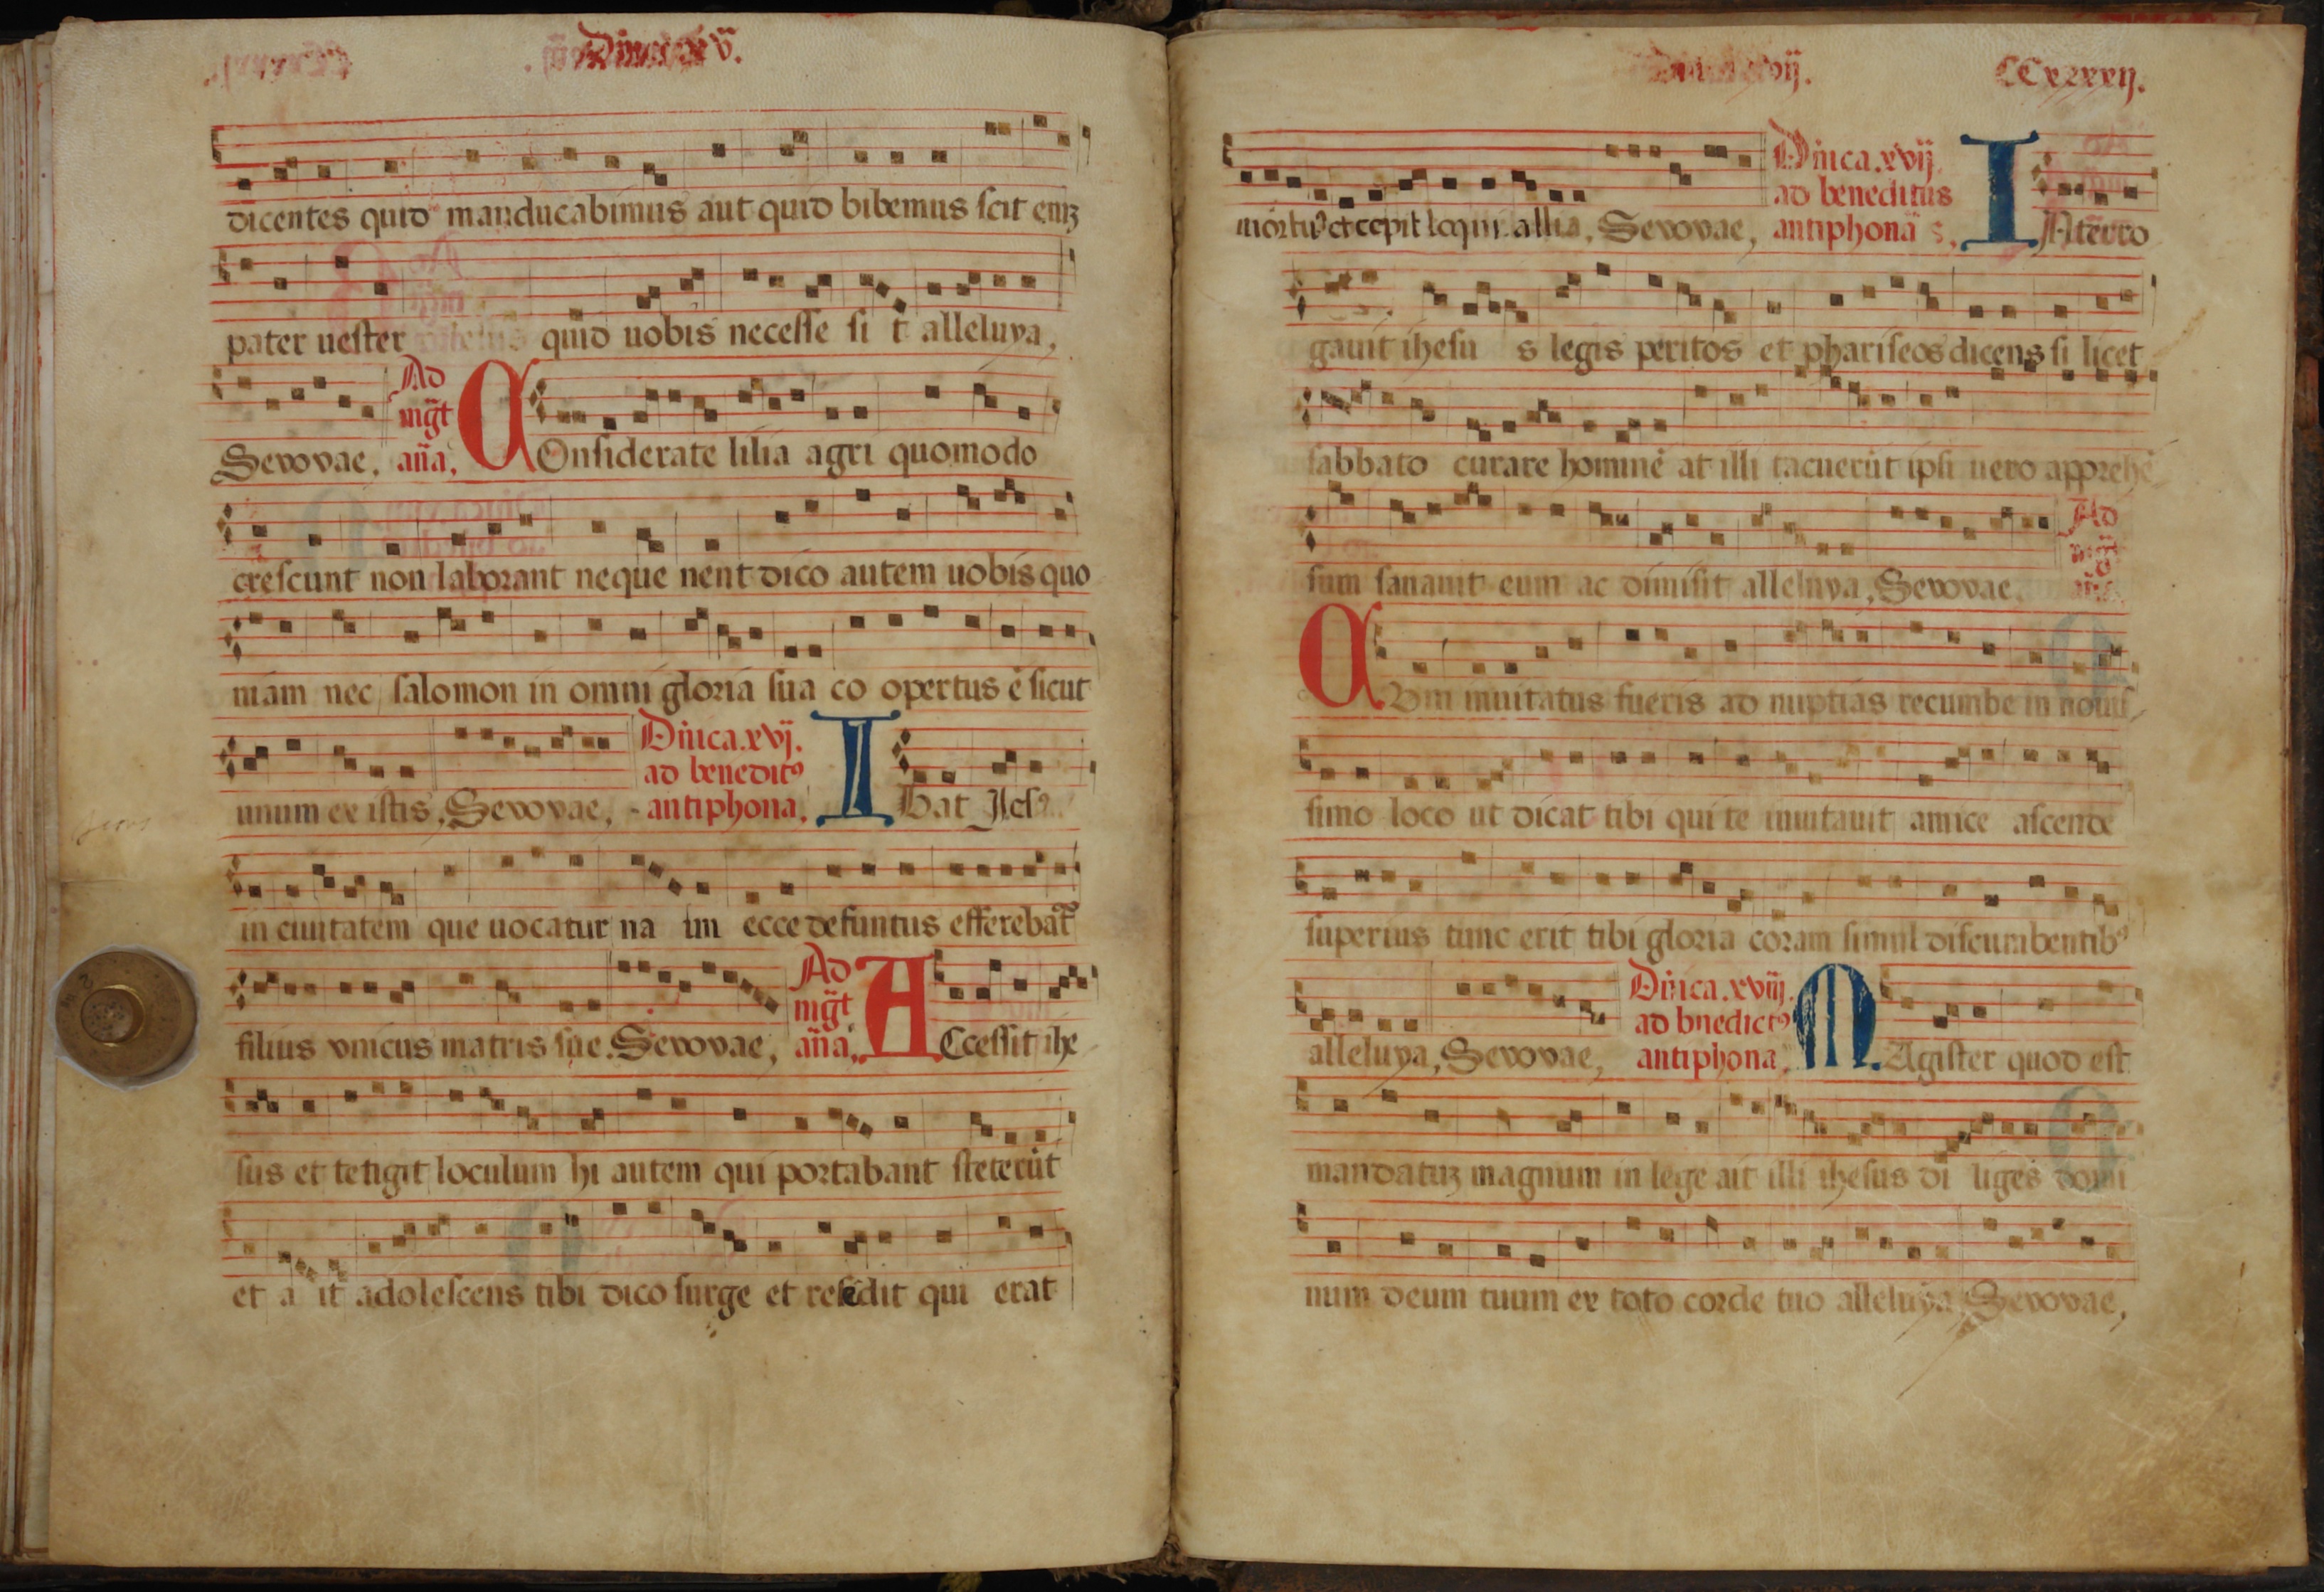 Dn̄ica xv.
dicentes quid manducabimus aut quid bibemus scit eniꝫ
pater uester quid uobis necesse si t alleluya,
Sevovae, Ad mg̃t aña, COnsiderate lilia agri quomodo
crescunt non laborant neque nent dico autem uobis quo
niam nec salomon in omni gloria sua co opertus ẽ sicut
unum ex istis, Sevovae, Dñica.xvj. ad benedictꝰ antiphona, IBat Jesꝰ
in ciuitatem que uocatur na im ecce defuntus efferebat᷑
filius vnicus matris sue. Sevovae, Ad mg̃t aña, ACcessit ihe
sus et tetigit loculum hi autem qui portabant steterũt
et a it adolescens tibi dico surge et resedit qui erat
xvij.
CCxxxxij.
mortuꝰ et cepit loqui allia, Sevovae, Dñica.xvij ad beneditus antiphona s, INterro
gauit ihesu s legis peritos et phariseos dicens si licet
sabbato curare hominẽ at illi tacuerũt ipsi uero apprehẽ
sum sanauit eum ac dimisit alleluya, Sevovae, Ad mg̃t aña
CVm inuitatus fueris ad nuptias recumbe in nouis
simo loco ut dicat tibi qui te inuitauit amice ascende
superius tunc erit tibi gloria coram simul discumbentibꝰ
alleluya, Sevovae, Dñica.xviij. ad bnedictꝰ antiphona, MAgister quod est
mandatuꝫ magnum in lege ait illi ihesus di liges domi
num deum tuum ex toto corde tuo alleluya Sevovae,